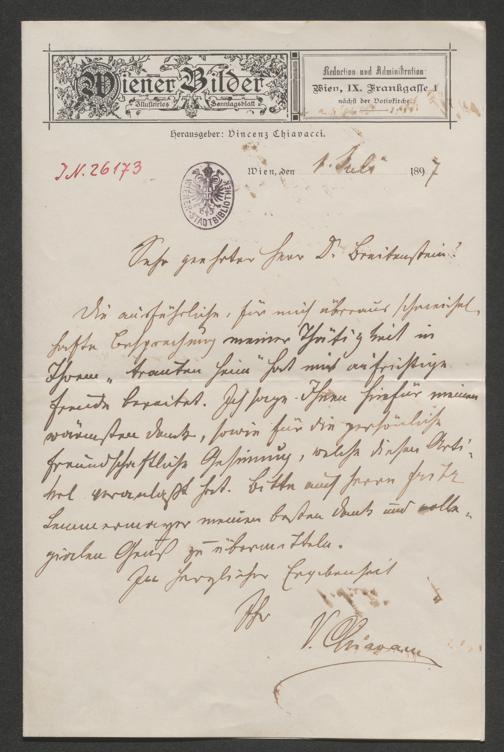 Wiener Bilder
Illustriertes Sonntagsblatt
Redaction und Administration:
Wien, IX. Frankgasse 1
nächst der Votivkirche.
Herausgeber: Vincenz Chiavacci.
J.N. 26173
WIENER STADTBIBLIOTHEK
Wien, den 1. Juli 1897
Sehr geehrter Herr Dr. Breitenstein!
Die ausführliche, für mich überaus schmeichel-
hafte Besprechung meiner Thätigkeit in
Ihrem „trauten Heim" hat mir aufrichtige
Freude bereitet. Ich sage Ihnen hiefür meinen
wärmsten Dank, sowie für die persönliche
freundschaftliche Gesinnung, welche diesen Arti-
kel veranlaßt hat. Bitte auch Herrn Fritz
Lemmermayer meinen besten Dank und colle-
gialen Gruß zu übermitteln.
In herzlicher Ergebenheit
Ihr
V. Chiavacci